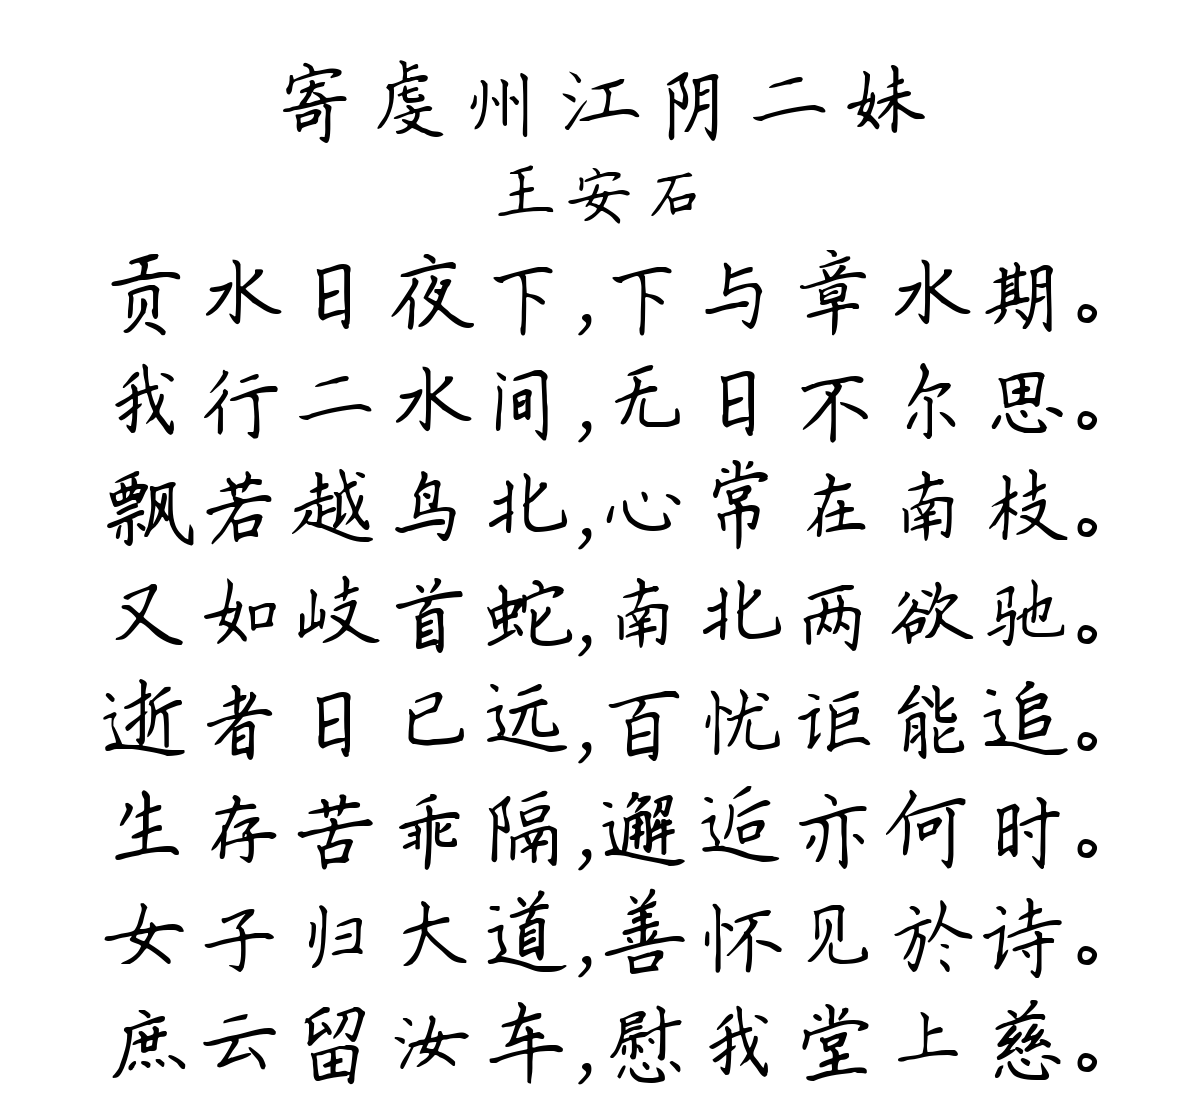 寄虔州江阴二妹
王安石
贡水日夜下,下与章水期。
我行二水间,无日不尔思。
飘若越鸟北,心常在南枝。
又如岐首蛇,南北两欲驰。
逝者日已远,百忧讵能追。
生存苦乖隔,邂逅亦何时。
女子归大道,善怀见於诗。
庶云留汝车,慰我堂上慈。